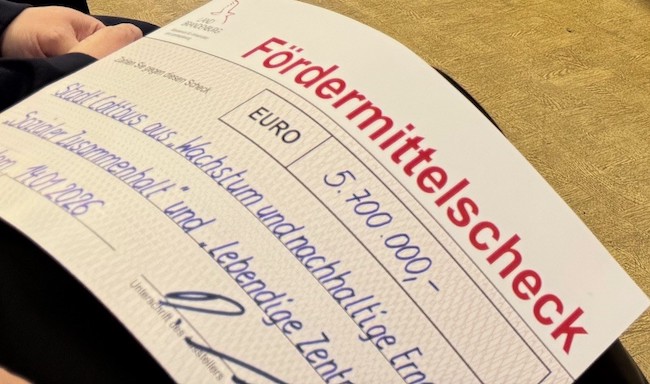 LAND
BRANDENBURG
Fördermittelscheck
Zahlen Sie gegen diesen Scheck
EURO
5.700.000,-
Stadt Cottbus aus „Wachstum und nachhaltige Ern
„Sozialer Zusammenhalt“ und „lebendige Zent
14.01.2026
Unterschrift des Ausstellers